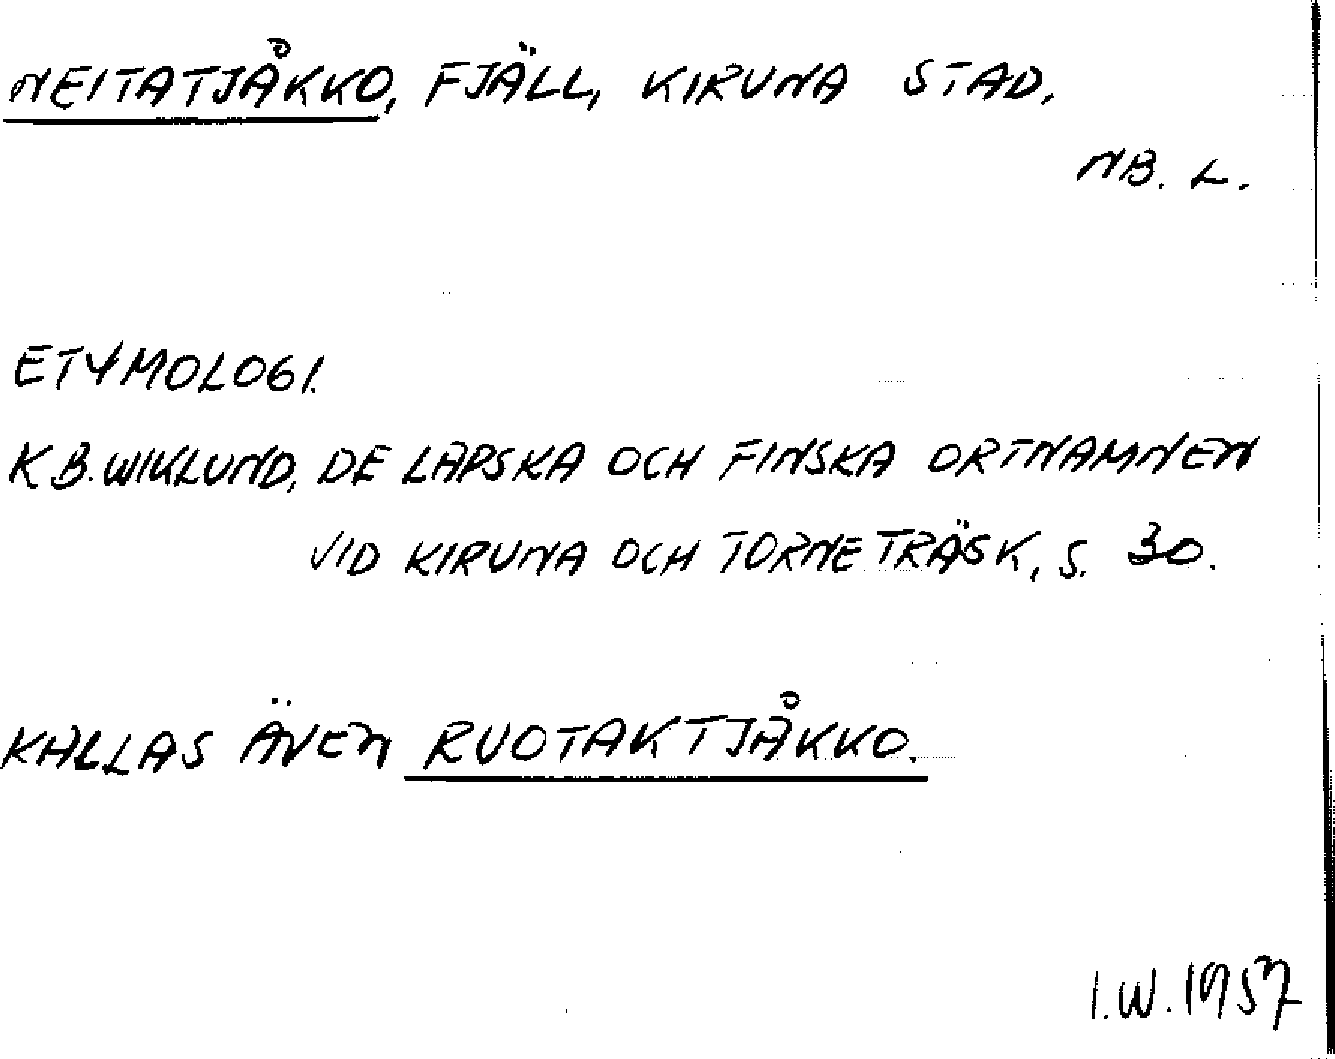 NEITATJÅKKO, FJÄLL, KIRUNA STAD.
NB. L.
ETYMOLOGI.
K B. WIKLUND, DE LAPSKA OCH FINSKA ORTNAMNEN
VID KIRUNA OCH TORNETRÄSK, S. 30.
KALLAS ÄVEN RUOTAKTJÅKKO.
I.W. 1957